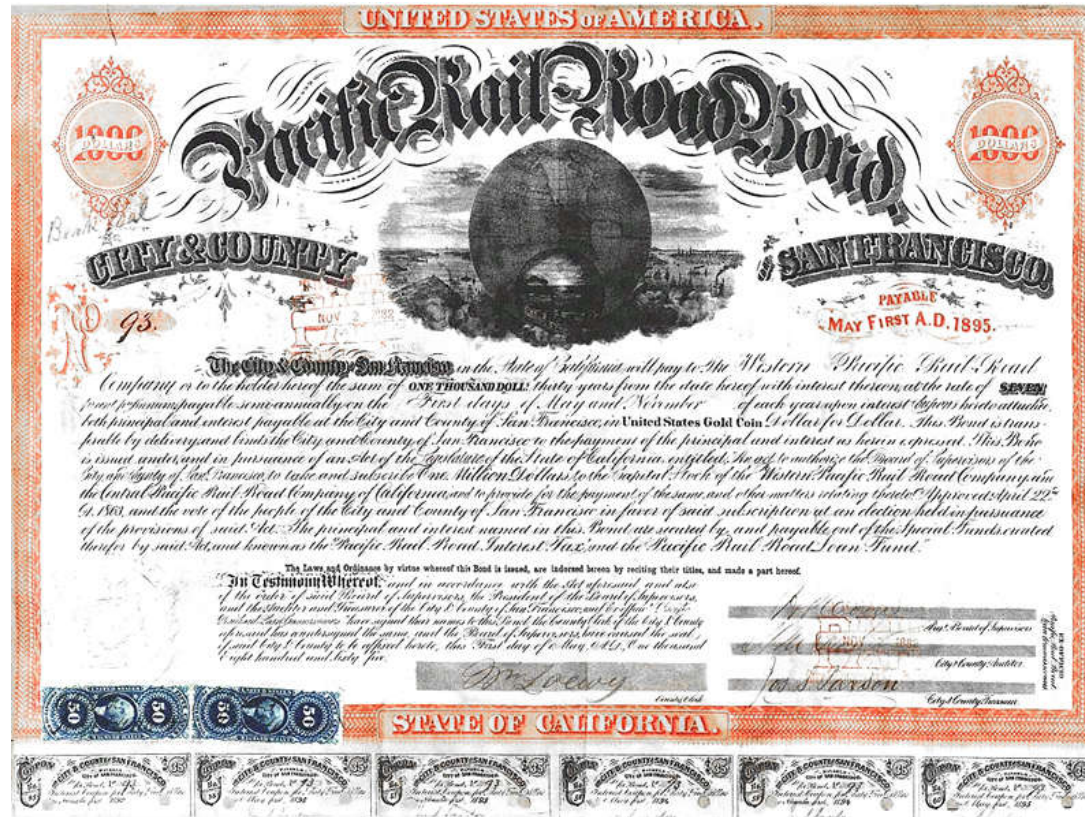 UNITED STATES OF AMERICA.
Pacific Rail-Road Bond,
1000 DOLLARS
1000 DOLLARS
CITY & COUNTY
OF SAN FRANCISCO,
No 93.
NOV 2 1888
PAYABLE
MAY FIRST A.D. 1895.
The City & County of San Francisco in the State of California will pay to The Western Pacific Rail-Road
Company or to the holder hereof the sum of ONE THOUSAND DOLLS thirty years from the date hereof with interest thereon, at the rate of SEVEN
payable semi-annually on the First days of May and November of each year upon interest Coupons hereto attached
both principal and interest payable at the City and County of San Francisco, in United States Gold Coin Dollar for Dollar. This Bond is trans-
ferable by delivery, and binds the City and County of San Francisco to the payment of the principal and interest as herein expressed. This Bond
is issued under, and in pursuance of an Act of the Legislature of the State of California, entitled, An act to authorize the Board of Supervisors of the
City and County of San Francisco, to take and subscribe One Million Dollars to the Capital Stock of the Western Pacific Rail Road Company and
the Central Pacific Rail Road Company of California, and to provide for the payment of the same, and other matters relating thereto Approved April 22nd
1863, and the vote of the people of the City and County of San Francisco in favor of said subscription at an election held in pursuance
of the provisions of said Act. The principal and interest named in this Bond are secured by, and payable out of the Special Funds created
therefor by said Act, and known as the "Pacific Rail Road Interest Tax" and the "Pacific Rail Road Loan Fund."
The Laws, and Ordinance by virtue whereof this Bond is issued, are indorsed hereon by reciting their titles, and made a part hereof.
In Testimony Whereof, and in accordance with the Act aforesaid, and also
of the order of said Board of Supervisors, the President of the Board of Supervisors,
and the Auditor and Treasurer of the City & County of San Francisco, and Ex officio
have signed their names to this Bond, the County Clerk of the City & County
aforesaid has countersigned the same, and the Board of Supervisors, have caused the seal
of said City & County to be affixed hereto, this First day of May, A.D. One thousand
eight hundred and sixty five.
Board of Supervisors
NOV 1888
City & County Auditor
Wm Loewy
County Clerk
Jos S Paxson
City & County Treasurer
50 50
50 50
STATE OF CALIFORNIA.
COUPON CITY & COUNTY SAN FRANCISCO $35
COUPON CITY & COUNTY SAN FRANCISCO $35
COUPON CITY & COUNTY SAN FRANCISCO $35
COUPON CITY & COUNTY SAN FRANCISCO $35
COUPON CITY & COUNTY SAN FRANCISCO $35
COUPON CITY & COUNTY SAN FRANCISCO $35